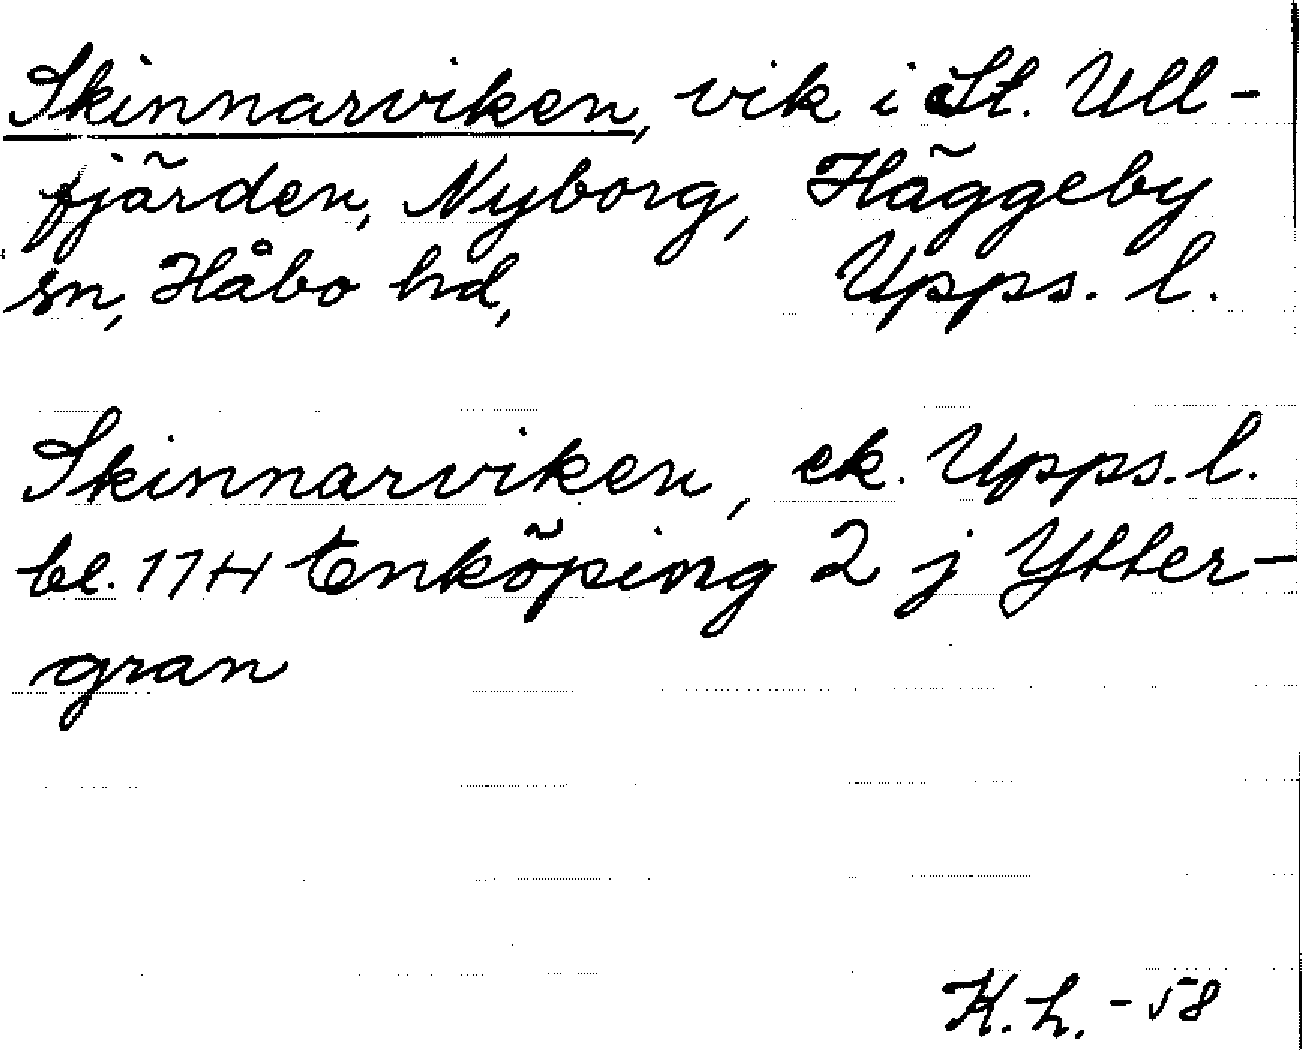 Skinnarviken, vik i St. Ull-
fjärden, Nyborg, Häggeby
sn, Håbo hd, Upps. l.
Skinnarviken, ek. Upps. l.
bl. 11H Enköping 2 j Ytter-
gran
K. h. -58